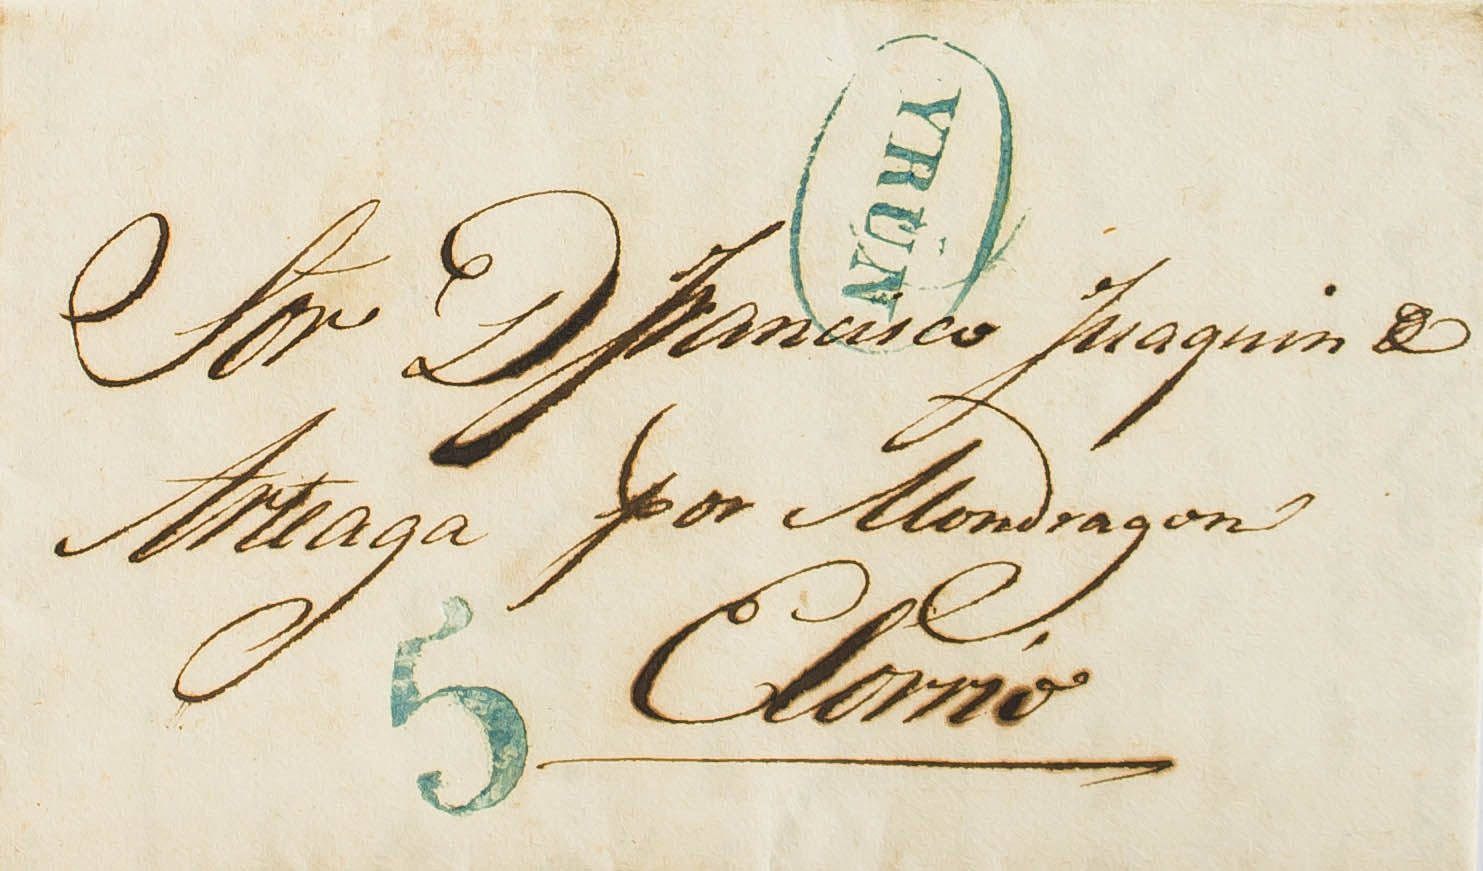 YRUN
Sor D Francisco Juaquin de
Arteaga por Mondragon
Elorrio
5